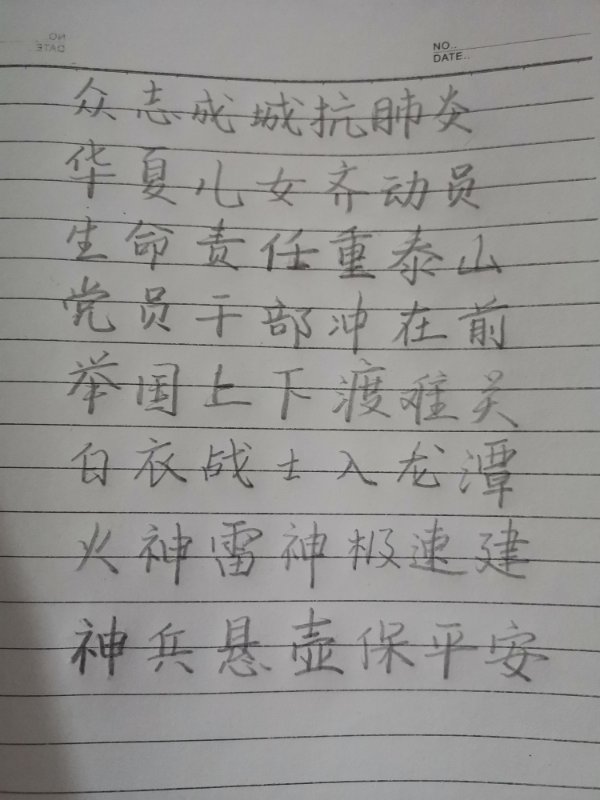 NO..
DATE..
众志成城抗肺炎
华夏儿女齐动员
生命责任重泰山
党员干部冲在前
举国上下渡难关
白衣战士入龙潭
火神雷神极速建
神兵悬壶保平安